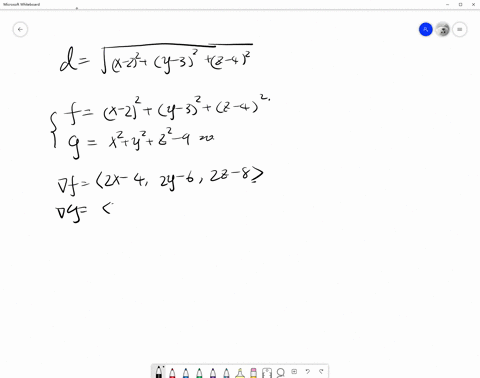 Microsoft Whiteboard
d = √(x-2)²+ (y-3)² +(z-4)²
f = (x-2)²+(y-3)²+(z-4)².
g = x²+y²+z²-9 =0
∇f = ⟨2x-4, 2y-6, 2z-8⟩
∇g= ⟨